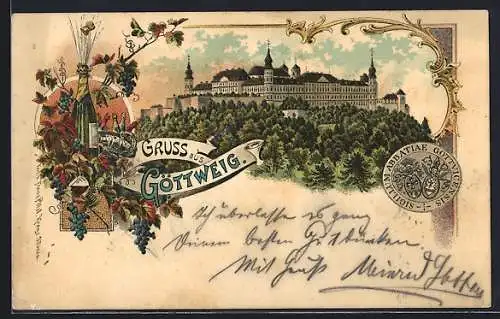 GRUSS AUS
GÖTTWEIG.
SIGILLUM ABBATIAE GOTTWICENSIS
Ich überlasse es ganz
Deinem besten Gutdünken
Mit Gruß Meinrad